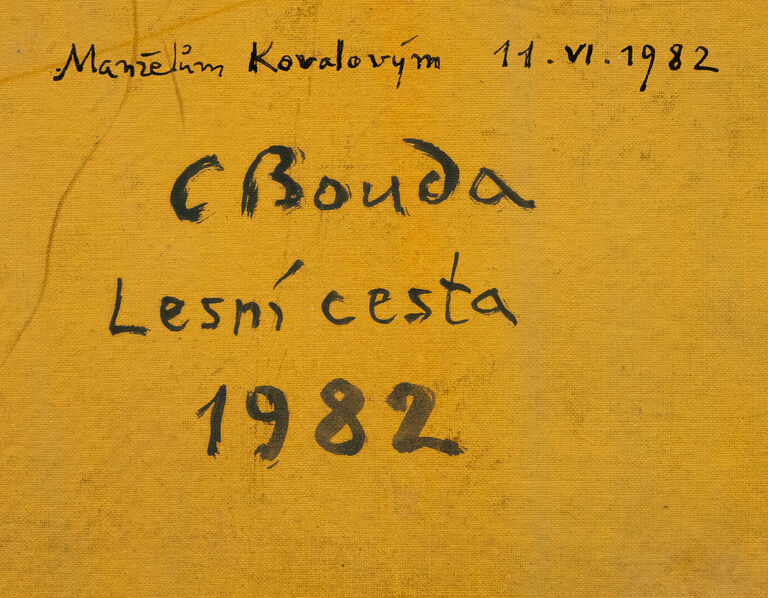 Manželům Kovalovým 11.VI.1982
C Bouda
Lesní cesta
1982